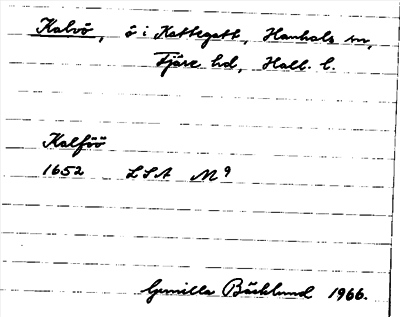 Kalvö, ö i Kattegatt, Hanhals sn,
Fjäre hd, Hall. l.
Kalföö
1652 LSA M9
Gunilla Bäcklund 1966.